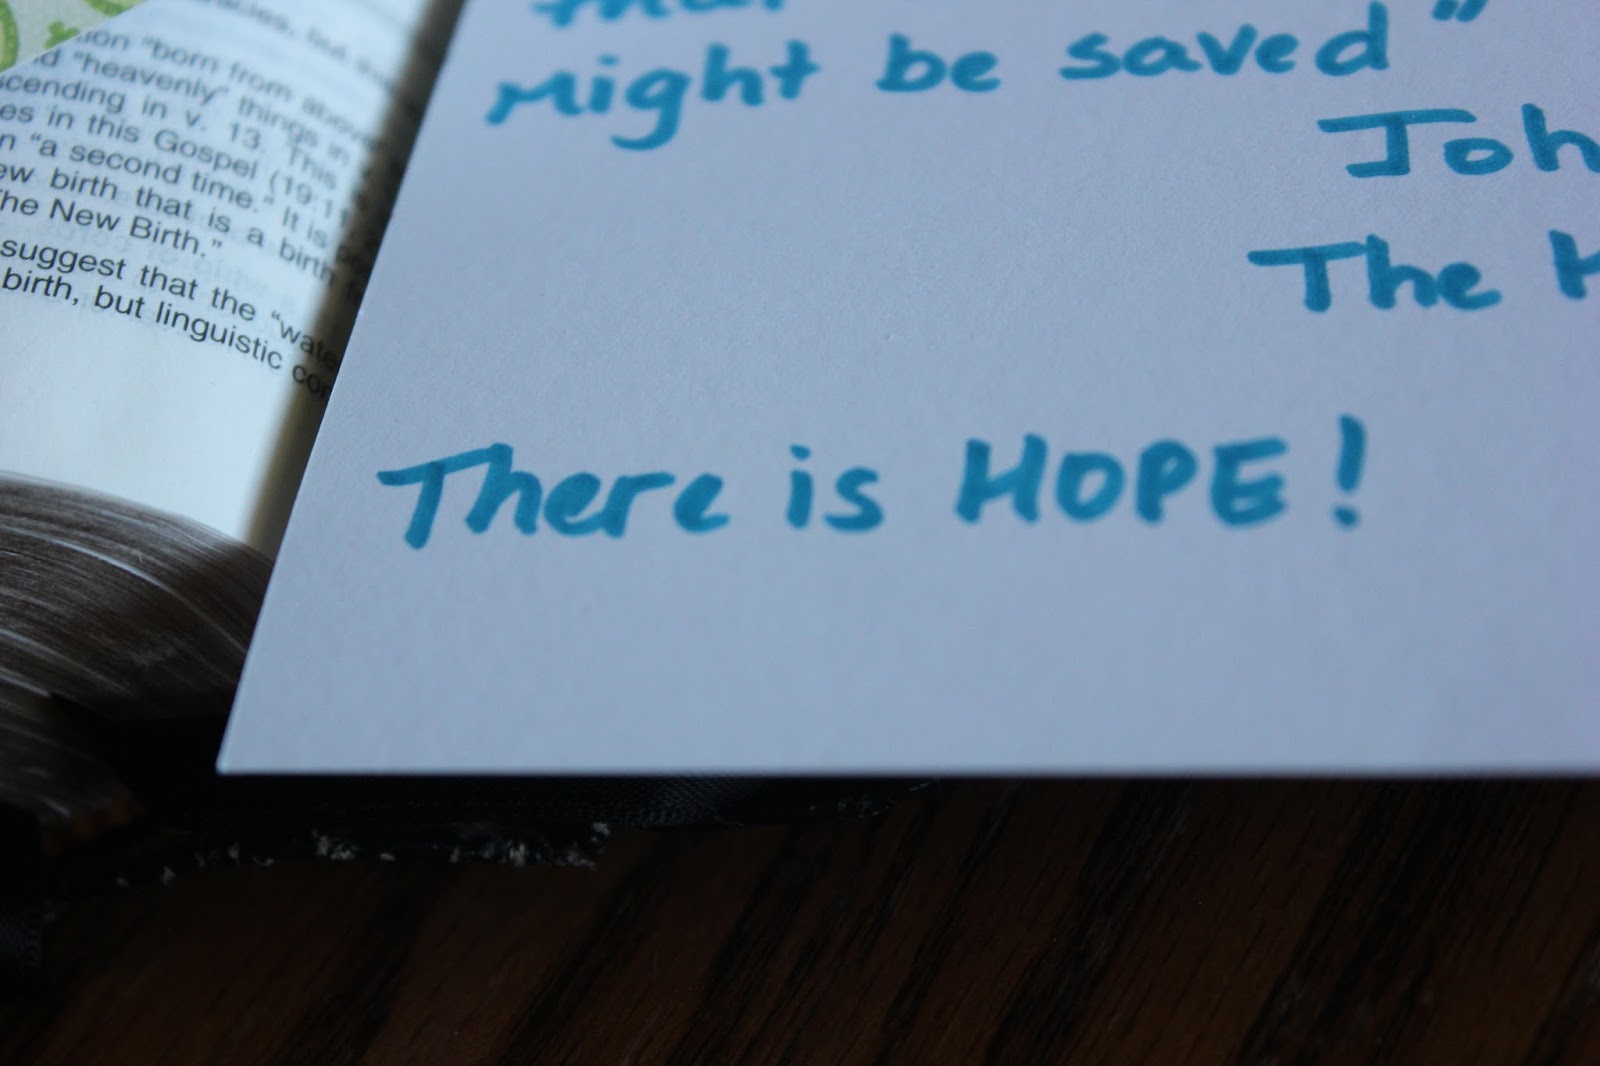 but
"born from above
"heavenly" things in
in v. 13. This
in this Gospel (19:11
"a second time." It is
birth that is a birth
The New Birth."
suggest that the "water
birth, but linguistic
that
Might be saved"
Joh
The H
There is HOPE!